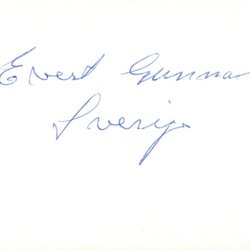 Evert Gunna
Sverige